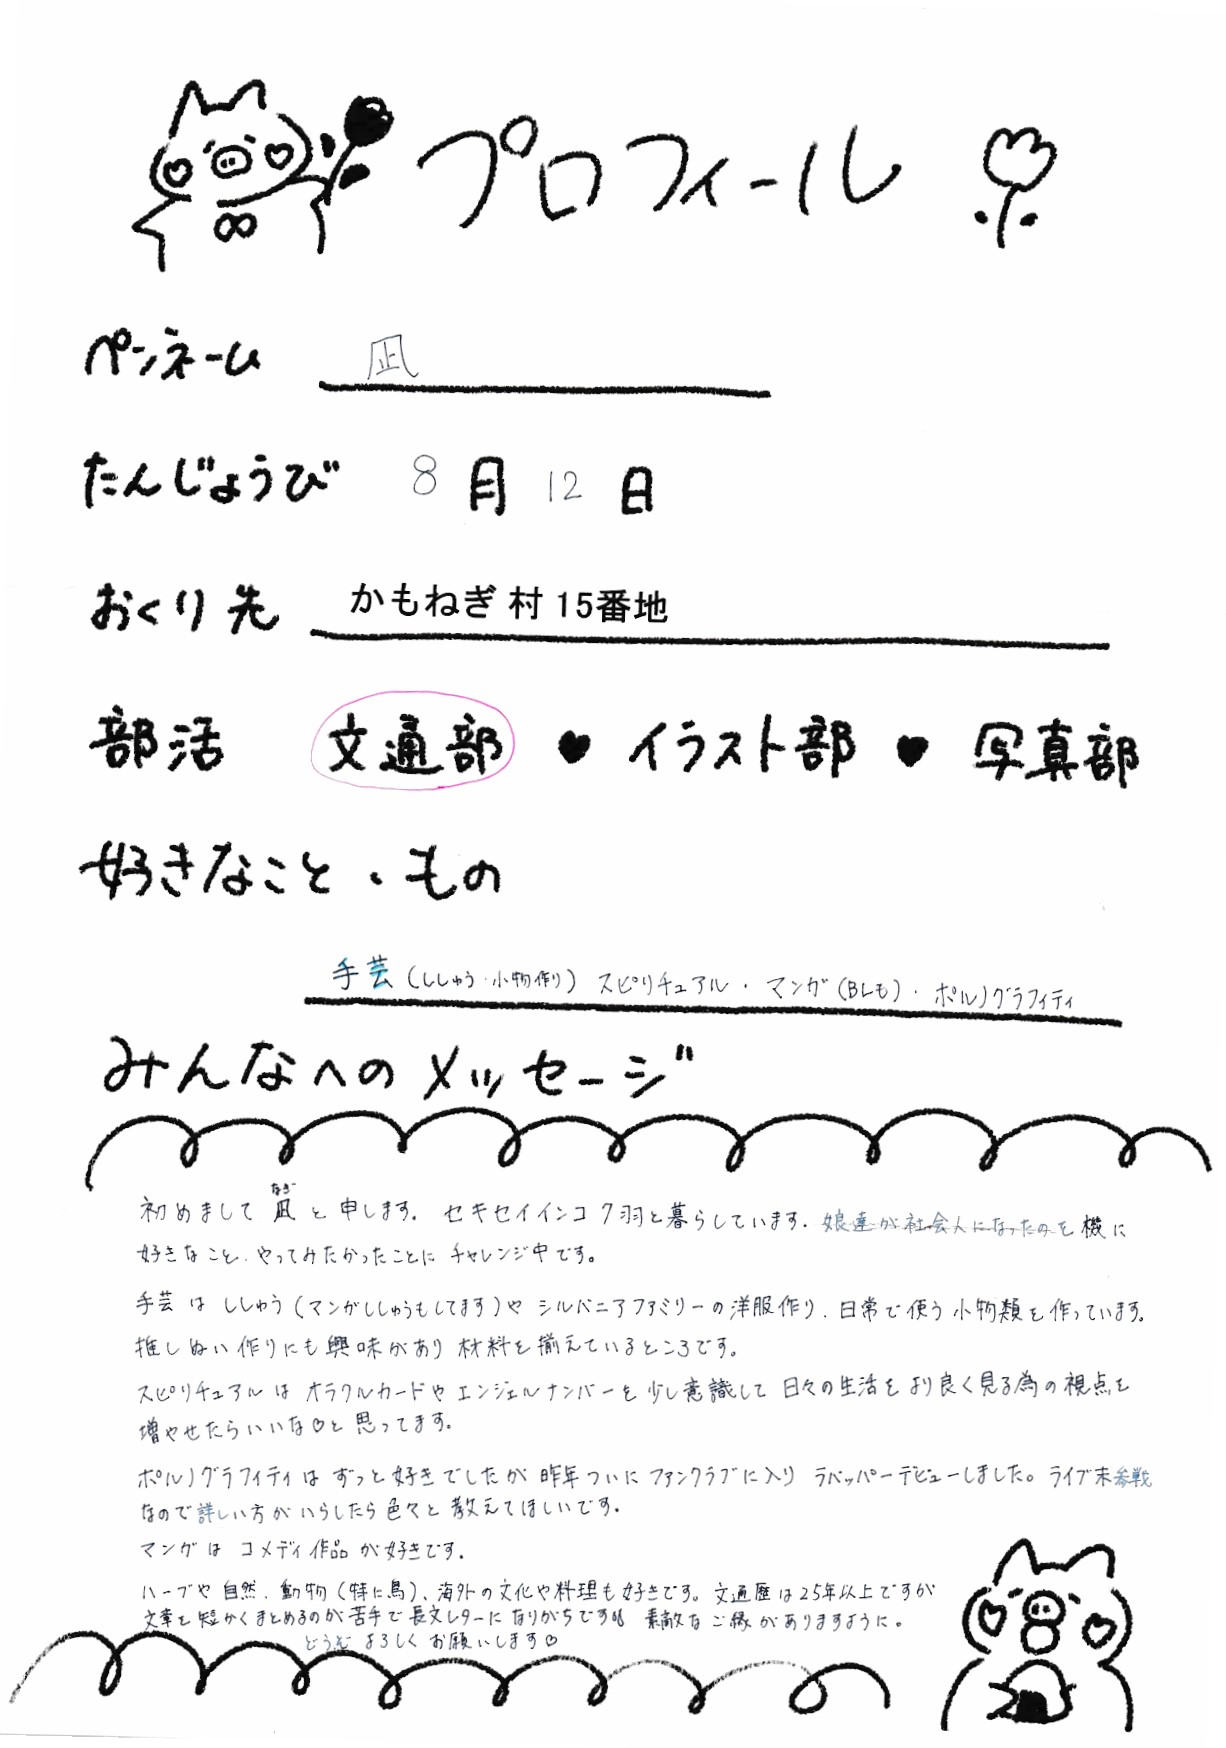 プロフィール
ペンネーム 凪
たんじょうび 8月12日
おくり先 かもねぎ村 15番地
部活 文通部 ♥ イラスト部 ♥ 写真部
好きなこと、もの
手芸(ししゅう・小物作り) スピリチュアル・マンガ(BLも)・ポルノグラフィティ
みんなへのメッセージ
なぎ
初めまして 凪と申します。セキセイインコ7羽と暮らしています。娘達が社会人になったのを機に
好きなこと、やってみたかったことに チャレンジ中です。
手芸は ししゅう(マンガししゅうもしてます)や シルバニアファミリーの洋服作り、日常で使う小物類を作っています。
推しぬい作りにも興味があり 材料を揃えているところです。
スピリチュアルは オラクルカードや エンジェルナンバーを少し意識して 日々の生活をより良く見る為の視点を
増やせたらいいな♡と思ってます。
ポルノグラフィティは ずっと好きでしたが 昨年ついに ファンクラブに入り ラバッパーデビューしました。ライブ未参戦
なので詳しい方がいらしたら色々と教えてほしいです。
マンガは コメディ作品が好きです。
ハーブや自然、動物(特に鳥)、海外の文化や料理も好きです。文通歴は25年以上ですが
文章を短かくまとめるのが苦手で長文レターになりがちです 素敵なご縁がありますように。
どうぞ よろしくお願いします♡